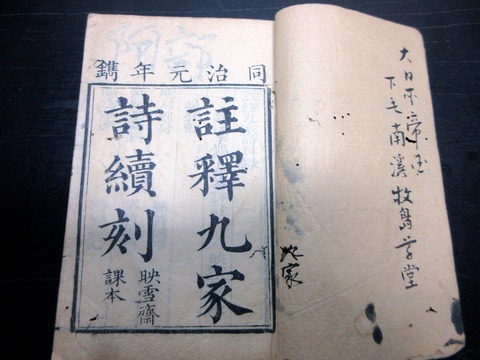 大日本帝国
下毛南溪牧島学堂
九家
同治元年鐫
註釋九家
詩續刻
映雪齋
課本